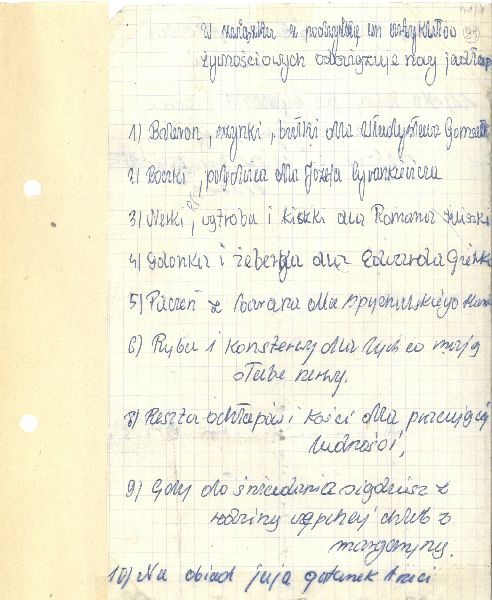 W związku z podwyżką cen artykułów
żywnościowych obowiązuje nowy jadłosp
1) Baleron, szynki, bitki dla Władysława Gomułk
2) Boczki, polędwica dla Józefa Cyrankiewicza
3) Nerki, wątroba i kiszki dla Romana
4) Golonka i żeberka dla Edwarda Gierka
5) Pieczeń z barana dla Spychalskiego Mari
6) Ryba i konserwy dla tych co mają
słabe nerwy.
8) Reszta ochłapów i kości dla pracującej
ludności,
9) Gdy do śniadania siądziesz z
rodziną wpychaj chleb z
margaryną.
10) Na obiad jaja gatunek trzeci